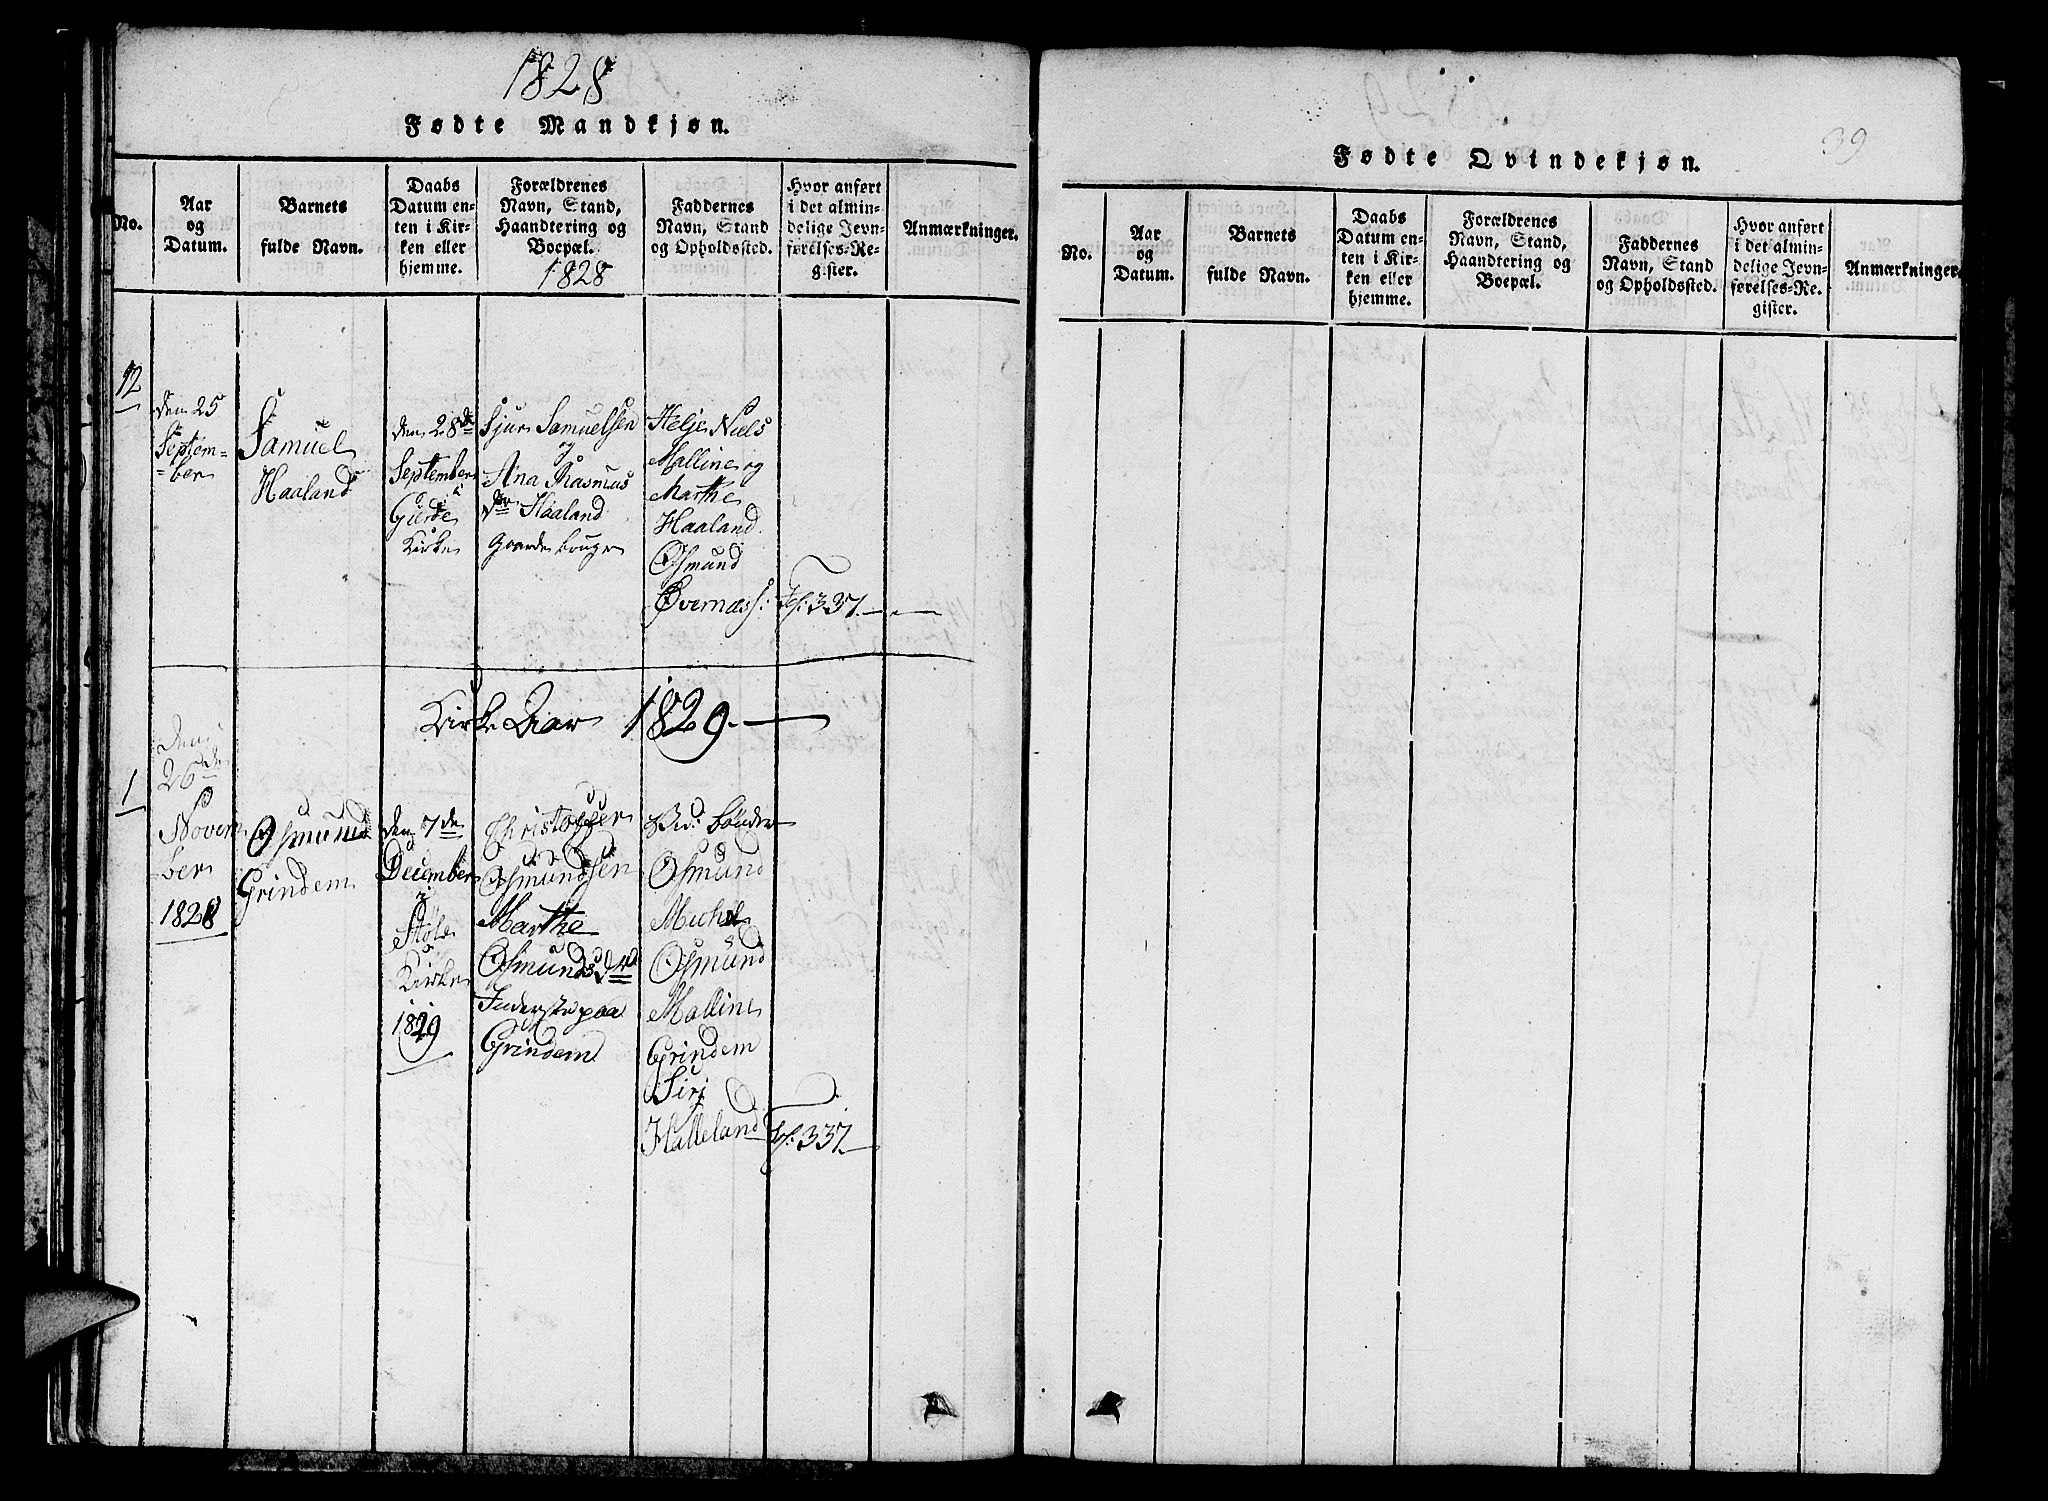 1828
Fødte Mandkjøn.
No.
Aar
og
Datum.
Barnets
fulde Navn.
Daabs
Datum en-
ten i Kir-
ken eller
hjemme.
Forældrenes
Navn, Stand,
Haandtering og
Boepæl.
1828
Faddernes
Navn, Stand
og Opholdssted.
Hvor anført
i det almin-
delige Jevn-
førelses-Re-
gister.
Anmærkninger.
12
den 25
Septem-
-ber
Samuel
Haaland
den 28de
September
i
Gierde
Kirke
Sjur Samuelsen
og
Ana Rasmus
dr Haaland
Gaardbruger
Helje Niels
Malline og
Marthe
Haaland
Osmund
Øvernæs:
Fol: 337.
Kirke Aar 1829.
1
Den
26de
Novem
ber
1828
Osmund
Grindem
den 7de
December
i
Støle
Kirke
1829
Christopher
Osmundsen
Marthe
Osmundsd
Inderste paa
Grindem
Bønder
Osmund
Michel
Osmund
Malline
Grindem
Siri
Halleland
Fol: 337.
39
Fødte Qvindekjøn.
No.
Aar
og
Datum.
Barnets
fulde Navn.
Daabs
Datum en-
ten i Kir-
ken eller
hjemme.
Forældrenes
Navn, Stand,
Haandtering og
Boepæl.
Faddernes
Navn, Stand
og Opholdssted.
Hvor anført
i det almin-
delige Jevn-
førelses-Re-
gister.
Anmærkninger.